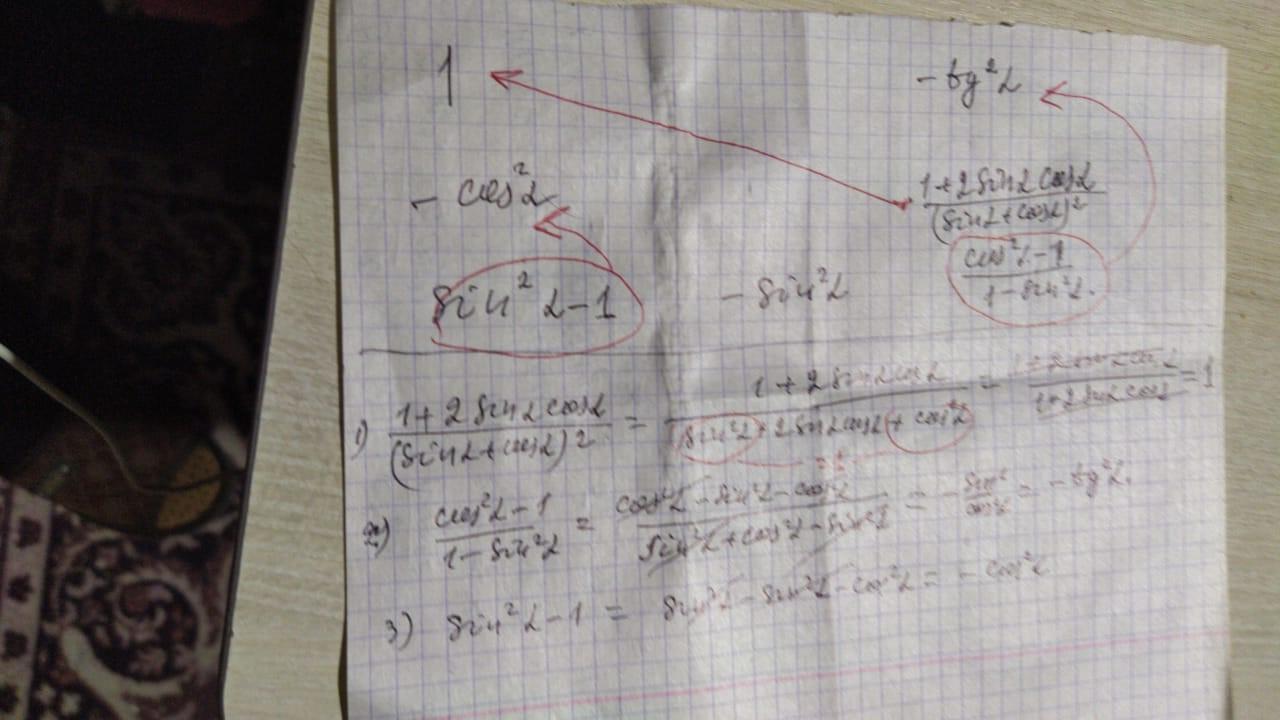 1
- tg²α
- cos²α
(1 + 2 sin α cos α) / (sin α + cos α)²
(cos²α - 1) / (1 - sin²α).
sin²α - 1
- sin²α
1) (1 + 2 sin α cos α) / (sin α + cos α)² = (1 + 2 sin α cos α) / (sin²α + 2 sin α cos α + cos²α) = (1 + 2 sin α cos α) / (1 + 2 sin α cos α) = 1
2) (cos²α - 1) / (1 - sin²α) = (cos²α - sin²α - cos²α) / (sin²α + cos²α - sin²α) = - sin² / cos²α = - tg²α.
3) sin²α - 1 = sin²α - sin²α - cos²α = - cos²α